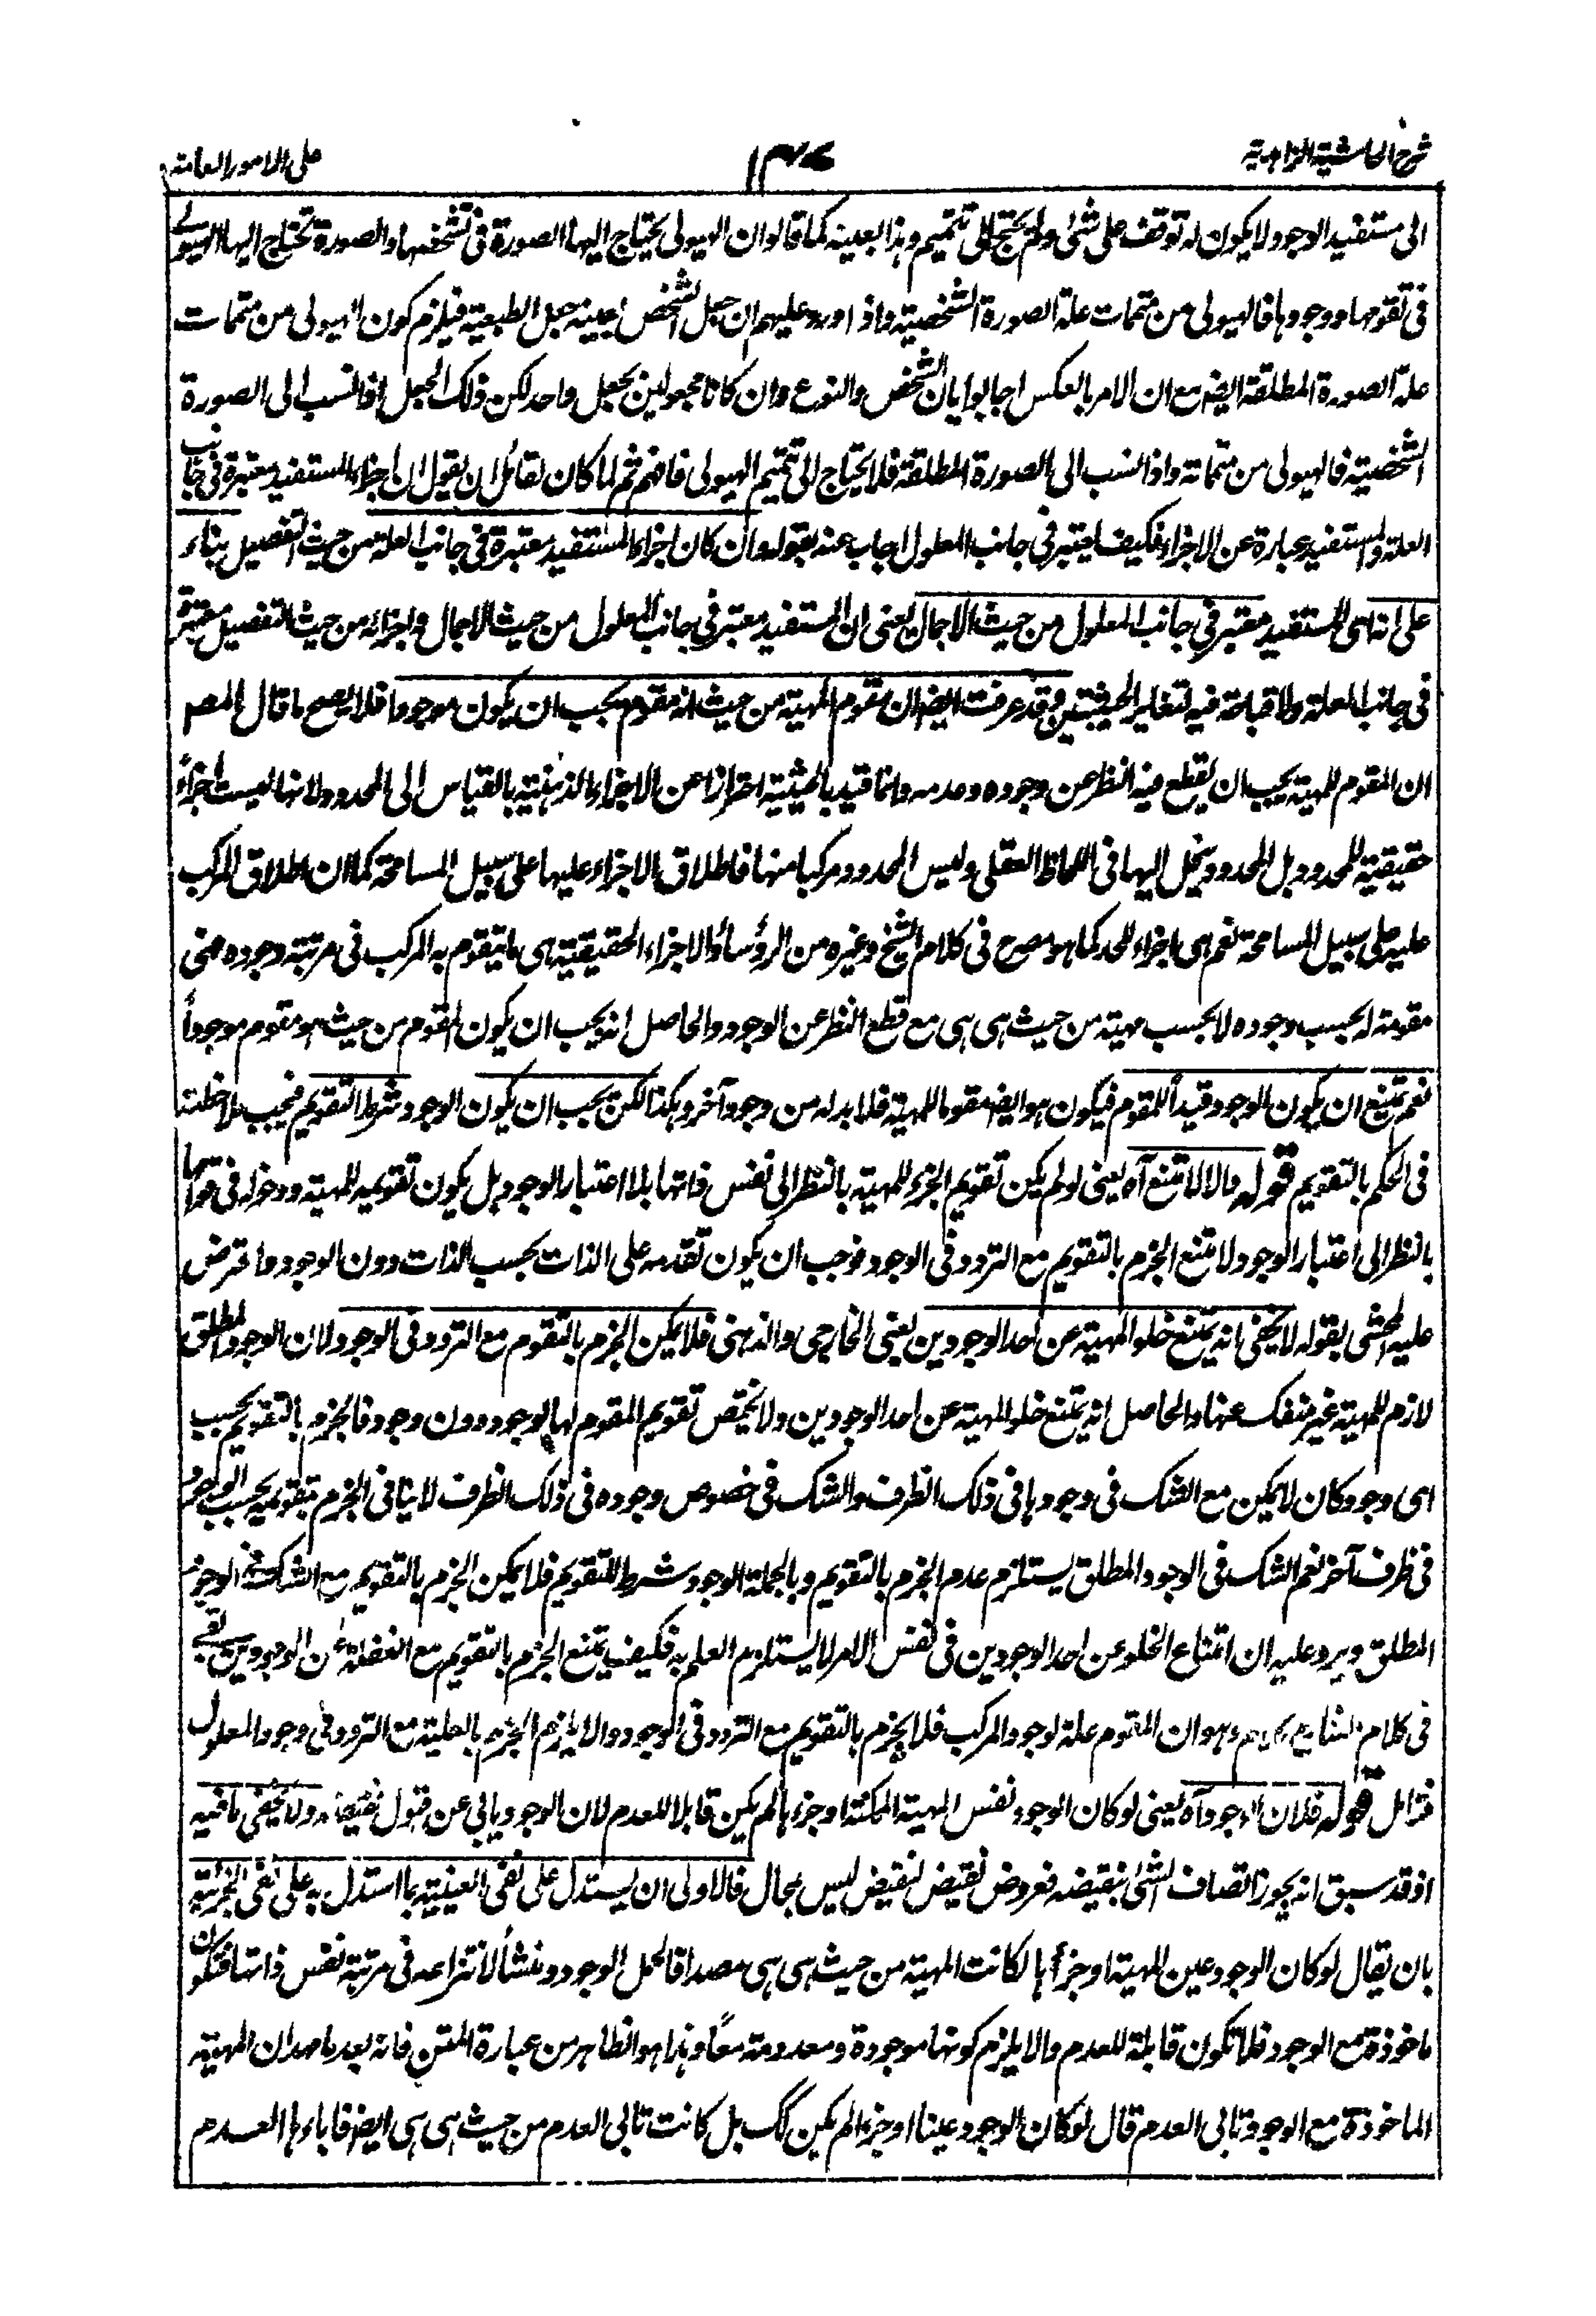 شرح الحاشية الزاهدية
على الامور العامة
الى مستفيد الوجود لا يكون له توقف على شئ ولم يحتج الى تتميم وهذا بعينه كما قالوا ان الهيولى يحتاج اليها الصورة فى تشخصها والصورة تحتاج اليها الهيولى
فى تقومها ووجودها فالهيولى من متممات علة الصورة الشخصية واذا اورد عليهم ان جعل الشخص بعينه جعل الطبعية فيلزم كون الهيولى من متممات
علة الصورة المطلقة ايضا مع ان الامر بالعكس اجابوا بان الشخص والنوع وان كانا مجعولين بجعل واحد لكن ذلك الجعل اذا نسب الى الصورة
الشخصية فالهيولى من متماته واذا نسب الى الصورة المطلقة فلا يحتاج الى تتميم الهيولى فافهم ثم لما كان لقائل ان يقول ان اجزاء المستفيد معتبرة فى جانب
العلة والمستفيد عبارة عن الاجزاء فكيف يعتبر فى جانب المعلول اجاب عنه بقوله وان كان اجزاء المستفيد معتبرة فى جانب العلة من حيث التفصيل بناء
على انه اى المستفيد معتبر فى جانب المعلول من حيث الاجمال يعنى ان المستفيد معتبر فى جانب المعلول من حيث الاجمال واجزائه من حيث التفصيل معتبر
فى جانب العلة ولا قباحة فيه لتغاير الحيثيتين وقد عرفت ايضا ان مقوم المهية من حيث انه مقوم يجب ان يكون موجودا فلا يصح ما قال المص
ان المقوم للمهية يجب ان يقطع فيه النظر عن وجوده وعدمه وانما قيد بالحيثية احترازا عن الاجزاء الذهنية بالقياس الى المحدود لانها ليست اجزاء
حقيقية للمحدود بل المحدود ينحل اليها فى اللحاظ العقلى وليس المحدود مركبا منها فاطلاق الاجزاء عليها على سبيل المسامحة كما ان اطلاق المركب
عليه على سبيل المسامحة نعم هى اجزاء للحد كما هو مصرح فى كلام الشيخ وغيره من الرؤساء والاجزاء الحقيقية هى ما يتقوم به المركب فى مرتبة وجوده فهى
مقومة له بحسب وجوده لا بحسب مهية من حيث هى هى مع قطع النظر عن الوجود والحاصل انه يجب ان يكون المقوم من حيث هو مقوم موجوداً
نعم يمتنع ان يكون الوجود قيداً للمقوم فيكون هو ايضا مقوما للمهية فلا بد له من وجود آخر وهكذا لكن يجب ان يكون الوجود شرط التقويم فيجب ملاحظته
فى الحكم بالتقويم قوله والا لامتنع آه يعنى لو لم يكن تقويم الجزء للمهية بالنظر الى نفس ذاتها بلا اعتبار الوجود بل يكون تقويمه للمهية ودخوله فى قوامها
بالنظر الى اعتبار الوجود لامتنع الجزم بالتقويم مع التردد فى الوجود فوجب ان يكون تقدمه على الذات بحسب الذات دون الوجود واعترض
عليه المحشى بقوله لا يخفى انه يمتنع خلو المهية عن احد الوجودين يعنى الخارجى والذهنى فلا يمكن الجزم بالتقوم مع التردد فى الوجود لان الوجود المطلق
لازم للمهية غير منفك عنها والحاصل انه يمتنع خلو المهية عن احد الوجودين ولا يختص تقويم المقوم لها بوجود دون وجود فالجزم بالتقويم بحسب
اى وجود كان لا يمكن مع الشك فى وجودها فى ذلك الظرف والشك فى خصوص وجوده فى ذلك الظرف لا ينافى الجزم بتقويمه بحسب الوجود
فى ظرف آخر نعم الشك فى الوجود المطلق يستلزم عدم الجزم بالتقويم وبالجملة الوجود شرط للتقويم فلا يمكن الجزم بالتقويم مع الشك فى الوجود
المطلق ويرد عليه ان امتناع الخلو عن احد الوجودين فى نفس الامر لا يستلزم العلم به فكيف يمتنع الجزم بالتقويم مع الغفلة عن الوجودين بقى
فى كلام وهو ان المقوم علة لوجود المركب فلا يجزم بالتقويم مع التردد فى الوجود والا يلزم الجزم بالعلية مع التردد فى وجود المعلول
فتامل قوله فلان الوجود آه يعنى لو كان الوجود نفس المهية الممكنة او جزءها لم يكن قابلا للعدم لان الوجود يابى عن قبول نقيضه ولا يخفى ما فيه
اذ قد سبق انه يجوز اتصاف الشئ بنقيضه فعروض نقيض لنقيض ليس بمحال فالاولى ان يستدل على نفى العينية بما استدل به على نفى الجزئية
بان يقال لو كان الوجود عين المهية او جزأ ها لكانت المهية من حيث هى هى مصداقا لحمل الوجود ومنشأ لانتزاعه فى مرتبة نفس ذاتها فتكون
ماخوذة مع الوجود فلا تكون قابلة للعدم والا يلزم كونها موجودة ومعدومة معًا وهذا هو الظاهر من عبارة المتن فانه بعد ما مهد ان المهية
الماخوذة مع الوجود تابى العدم قال لو كان الوجود عينا او جزءا لم يكن كك بل كانت تابى العدم من حيث هى هى ايضا فاباءها العدم